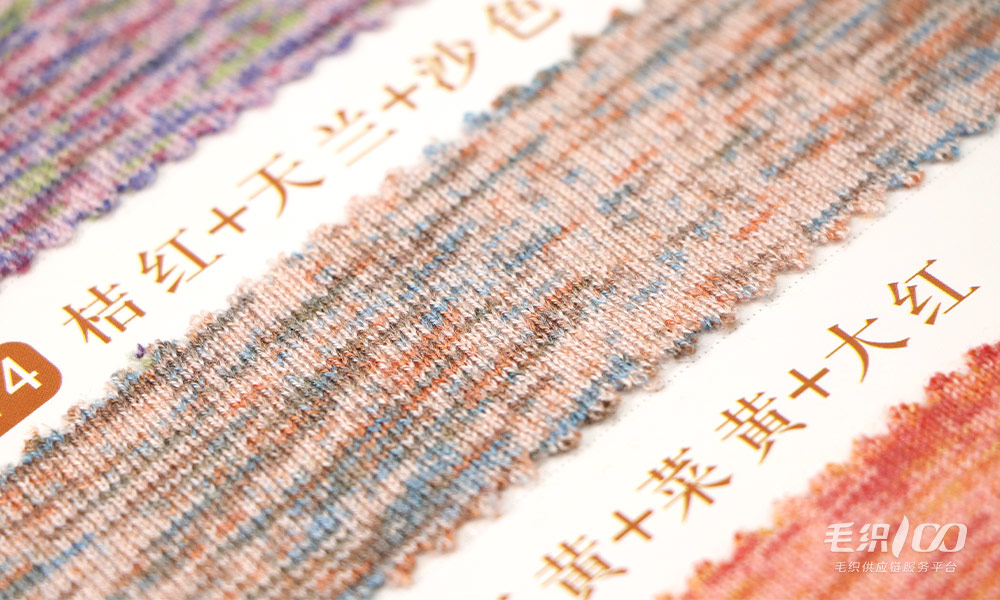 桔红+天兰+沙色
4
黄+菜黄+大红
毛织100
毛织供应链服务平台